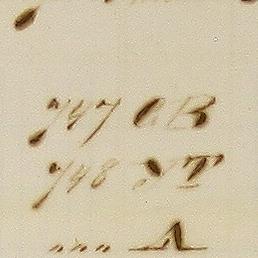 747 CB
748 XT
„ „ „ A